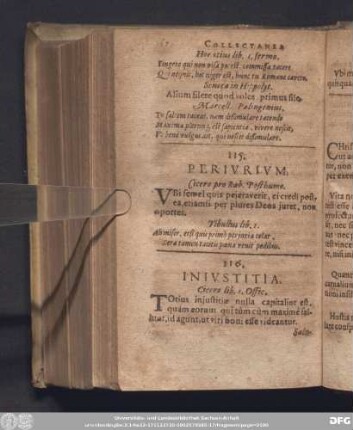 COLLECTANEA
Horatius lib. 1. sermo.
Fingere qui non visa potest, commissa tacere
Qui nequit, hic niger est, hunc tu Romane caveto.
Seneca in Hippolyt.
Alium silere quod voles, primus sile.
Marcell. Palingenius.
Tu saltem taceas, nam dissimulare tacendo
Maxima plerunq; est sapientia, vivere nescit,
Ut bene vulgus ait, qui nescit dissimulare.
115.
PERIURIUM.
Cicero pro Rab. Posthumo.
Ubi semel quis pejeraverit, ei credi post-
ea, etiamsi per plures Deos juret, non
oportet.
Tibullus lib. 1.
Ah miser, etsi quis primò perjuria celat,
Sera tamen tacitis pœna venit pedibus.
116.
INIUSTITIA.
Cicero lib. 1. Offic.
TOtius injustitiæ nulla capitalior est,
quàm eorum qui tum cùm maximè fal-
lunt, id agunt, ut viri boni esse videantur.
Universitäts- und Landesbibliothek Sachsen-Anhalt
DFG